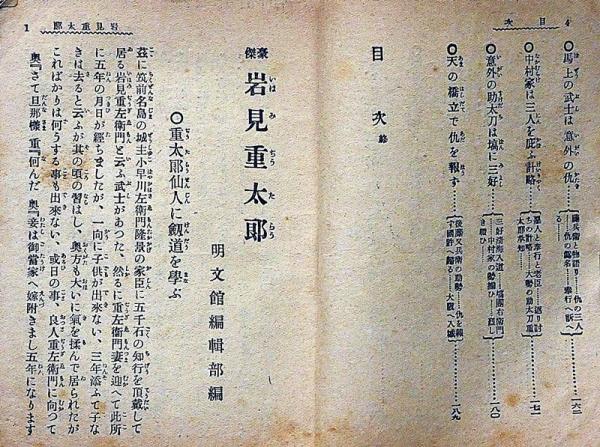 次目 4
○馬上の武士は意外の仇
藤兵衛と物語り……仇の三人
……仇の姓名……奉行へ訴へ
る……一六二
○中村家は三人を庇ふ計略
惡人と奉行と老臣……返り討
ちの計略……大勢の助太刀重
太郎承知……一七一
○意外の助太刀は塙に三好
三好淸海入道……塙團右衛門
……中村家の勢揃ひ……烈し
き戰ひ……一八〇
○天の橋立で仇を報ず
後藤又兵衛の助勢……仇を報
ず國許へ歸る……大阪へ入城……一八九
目次 終
郎太重見岩 1
豪傑 岩見重太郎
明文館編輯部編
○重太郎仙人に劔道を學ぶ
茲に筑前名島の城主小早川左衛門隆景の家臣に五千石の知行を頂戴して
居る岩見重左衛門と云ふ武士があつた、然るに重左衛門妻を迎へて此所
に五年の月日が經ちましたが、一向に子供が出來ない、三年添ふて子な
きは去ると云ふが其の頃の習はし、奥方も大いに氣を揉んで居られたが
こればかりは何うする事も出來ない、或日の事、良人重左衛門に向つて
奥『さて旦那樣 重『何んだ 奥『妾は御當家へ嫁附きまし五年になります